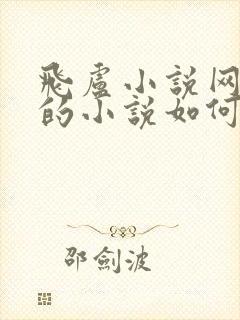 飛盧小說网
的小說如何
邵劍波